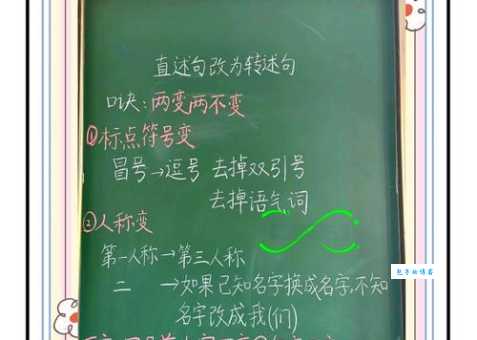 直述句改为转述句
口诀:两变两不变
①标点符号变
冒号→逗号 去掉双引号
去掉语气词
②人称变
第一人称→第三人称
二 →如果已知名字换成名字,不知
名字改成我(们)